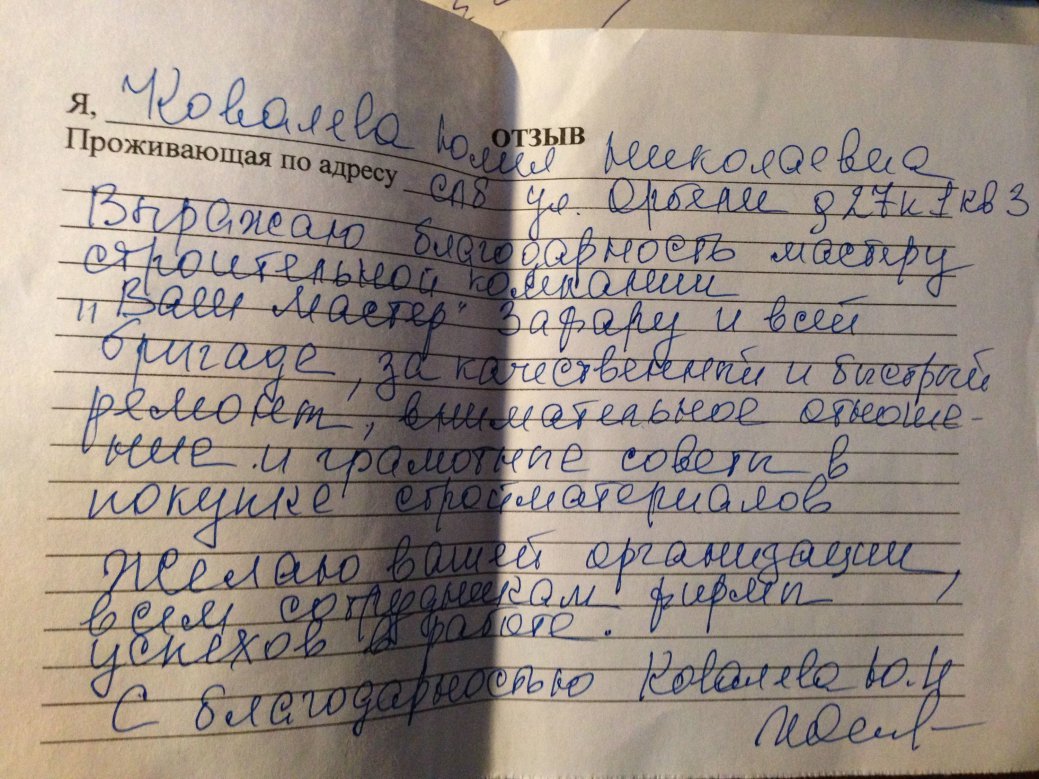 ОТЗЫВ
Я, Ковалева Юлия Николаевна
Проживающая по адресу СПб ул. Орбели д27к1кв3
Выражаю благодарность мастеру
строительной компании
"Ваш Мастер" Зафару и всей
бригаде, за качественный и быстрый
ремонт, внимательное отноше-
ние и грамотные советы в
покупке стройматериалов
Желаю вашей организации,
всем сотрудникам фирмы
успехов в работе.
С благодарностью Ковалева Ю.Н